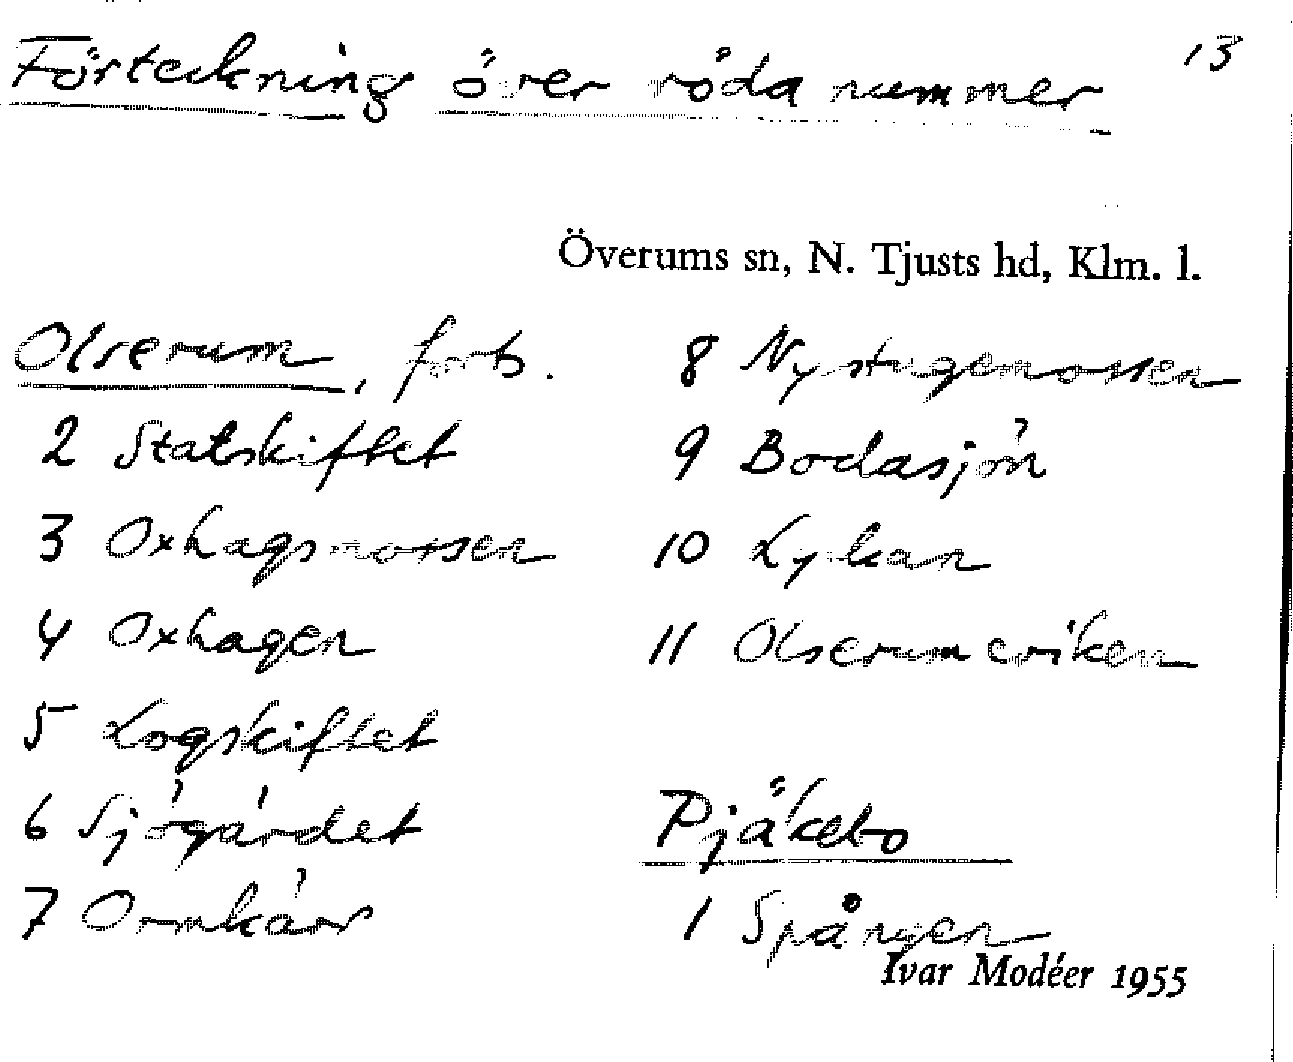 13
Förteckning över röda nummer
Överums sn, N. Tjusts hd, Klm. l.
Olserum, forts.
2 Statskiftet
3 Oxhagsmossen
4 Oxhagen
5 Logskiftet
6 Sjögärdet
7 Ormkärr
8 Nystugemossen
9 Bodasjön
10 Lykan
11 Olserumsviken
Pjäkebo
1 Spången
Ivar Modéer 1955